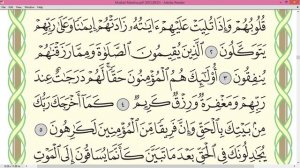 قُلُوبُهُمْ وَإِذَا تُلِيَتْ عَلَيْهِمْ ءَايَٰتُهُۥ زَادَتْهُمْ إِيمَٰنًا وَعَلَىٰ رَبِّهِمْ
يَتَوَكَّلُونَ ٢ ٱلَّذِينَ يُقِيمُونَ ٱلصَّلَوٰةَ وَمِمَّا رَزَقْنَٰهُمْ
يُنفِقُونَ ٣ أُو۟لَٰٓئِكَ هُمُ ٱلْمُؤْمِنُونَ حَقًّا لَّهُمْ دَرَجَٰتٌ عِندَ
رَبِّهِمْ وَمَغْفِرَةٌ وَرِزْقٌ كَرِيمٌ ٤ كَمَآ أَخْرَجَكَ رَبُّكَ
مِنۢ بَيْتِكَ بِٱلْحَقِّ وَإِنَّ فَرِيقًا مِّنَ ٱلْمُؤْمِنِينَ لَكَٰرِهُونَ ٥
يُجَٰدِلُونَكَ فِى ٱلْحَقِّ بَعْدَ مَا تَبَيَّنَ كَأَنَّمَا يُسَاقُونَ إِلَى ٱلْمَوْتِ